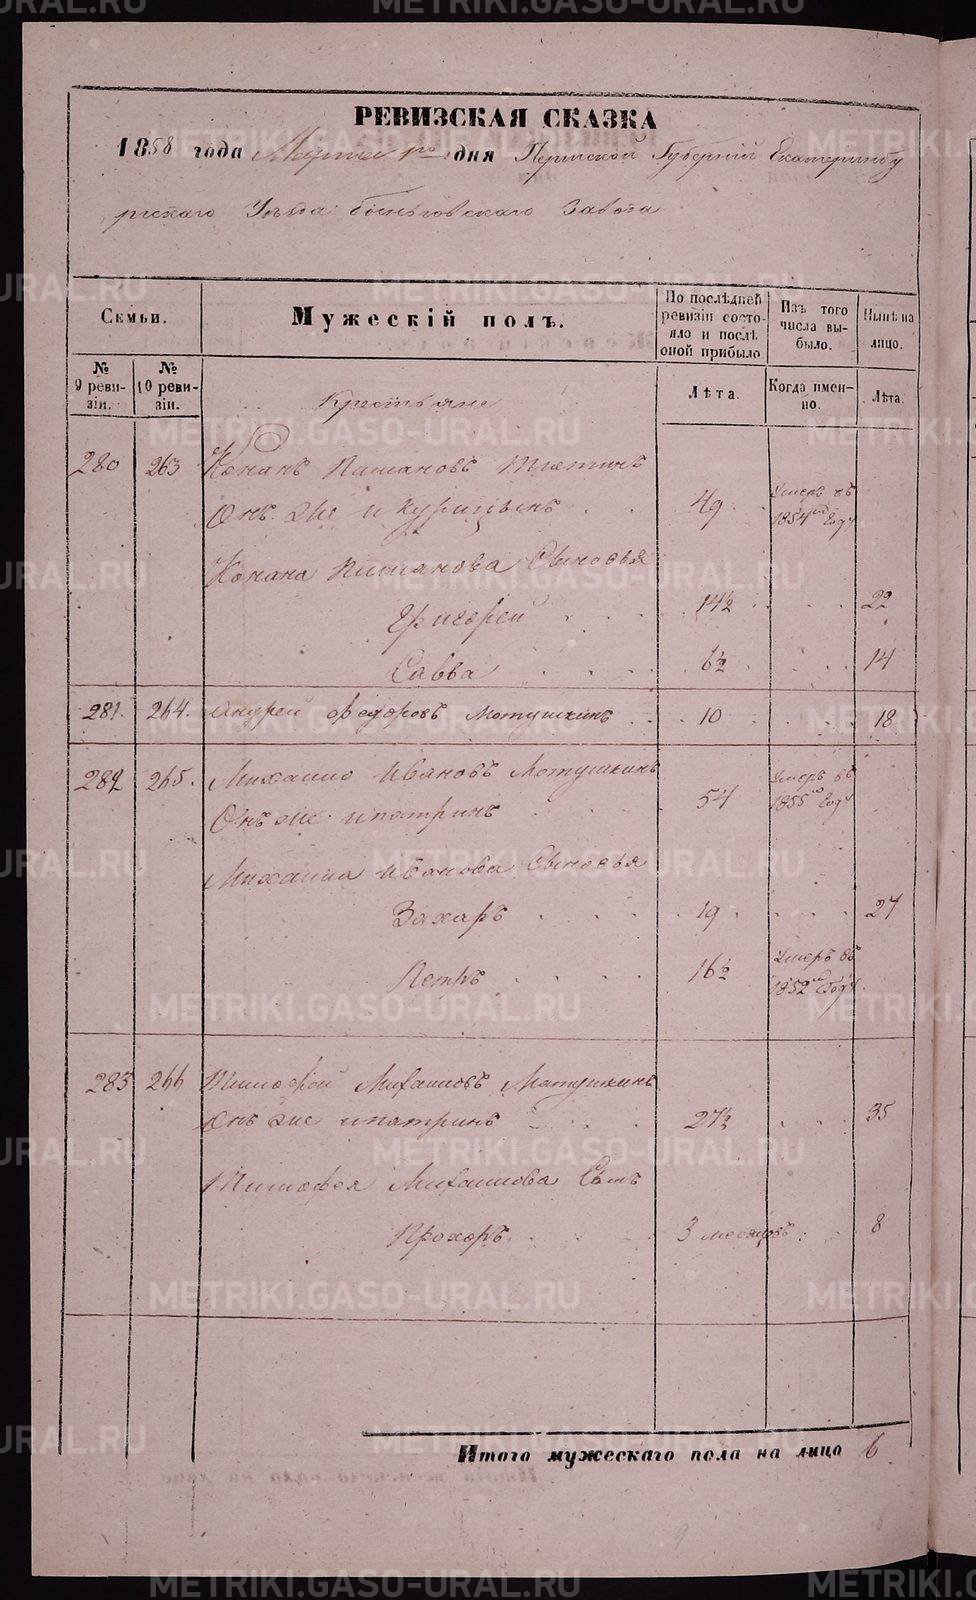 РЕВИЗСКАЯ СКАЗКА
1858 года Марта 1го дня Пермской Губерніи Екатеринбу
ргскаго Уѣзда Быньговскаго Завода
Семьи.
Мужескій полъ.
По послѣдней ревизіи состояло и послѣ оной прибыло
Изъ того числа выбыло.
Нынѣ на лицо.
№ 9 ревизіи.
№ 10 ревизіи.
Лѣта.
Когда именно.
Лѣта.
Крестьяне
280 263 Конанъ
Онъ же и Курицынъ 49 Умеръ въ 1854мъ Году
Конана Сыновья
Григорей 14½ 22
Савва 6½ 14
281. 264. Андрей Федоровъ Мотушкинъ 10 18
282 265. Михаило Ивановъ Мотушкинъ
Онъ же Ипатринъ 54 Умеръ въ 1855мъ Году
Михаила Иванова Сыновья
Захаръ 19 27
Петръ 16½ Умеръ въ 1852мъ Году
283 266 Тимофей Михаиловъ Мотушкинъ
Онъ же Ипатринъ 27½ 35
Тимофея Михаилова Сынъ
Прохоръ 3 месяцовъ 8
Итого мужескаго пола на лицо 6
METRIKI.GASO-URAL.RU